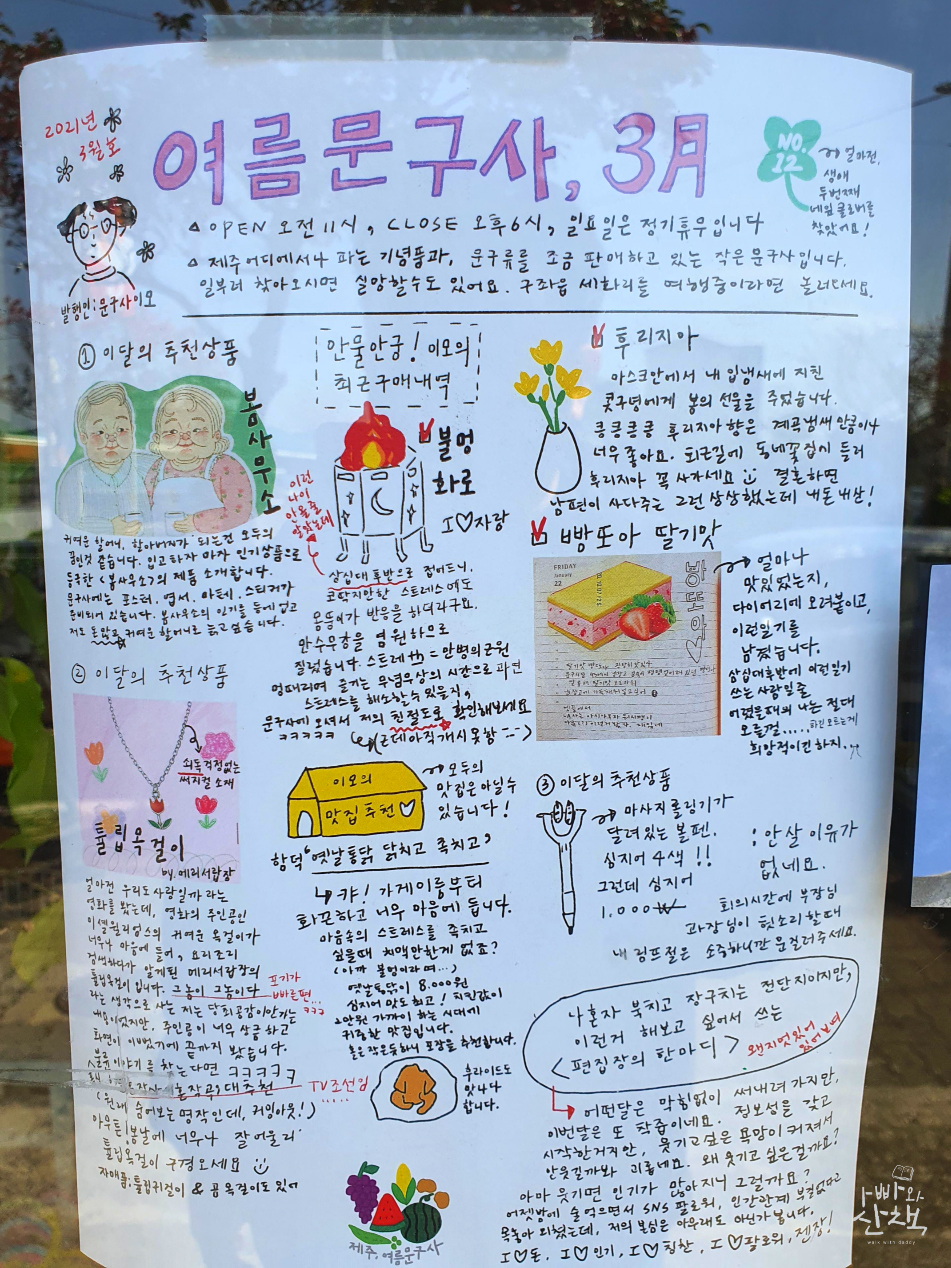 2021년
3월호
여름문구사, 3月
NO.
12
얼마전,
생애
두번째
네잎클로버를
찾았어요!
발행인:문구사이모
△ OPEN 오전 11시, CLOSE 오후6시, 일요일은 정기휴무입니다
△ 제주어디에서나 파는 기념품과, 문구류를 조금 판매하고 있는 작은 문구사입니다.
일부러 찾아오시면 실망할수도 있어요. 구좌읍 세화리를 여행중이라면 놀러오세요.
① 이달의 추천상품
봄사무소
귀여운 할머니, 할아버지가 되는건 모두의
꿈인것 같습니다. 입고하자 마자 인기상품으로
등극한 <봄사무소>의 제품 소개합니다.
문구사에는 포스터, 엽서, 마테, 스티커가
준비되어 있습니다. 봄사무소의 인기를 등에 업고
저도 돈많고 귀여운 할머니로 늙고 싶습니다.
② 이달의 추천상품
쇠독걱정없는
써지컬 소재
튤립목걸이
by. 메리서랍장
얼마전 우리도 사랑일까 라는
영화를 봤는데, 영화의 주인공인
미셸윌리엄스의 귀여운 목걸이가
너무나 마음에 들어, 요리조리
검색하다가 알게된 메리서랍장의
튤립목걸이 입니다. 그놈이 그놈이다
포기가
빠른편...
라는 생각으로 사는 저는 당최공감이안가는
ㅋㅋㅋ
내용이었지만, 주인공이 너무 상큼하고
화면이 이뻤기에 끝까지 봤습니다.
불륜이야기를 찾는다면 ㅋㅋㅋㅋㅋ
대추천
TV조선임
(원래 숨어보는 명작인데, 커밍아웃!)
아무튼!봄날에 너무나 잘어울리
튤립목걸이 구경오세요
자매품:튤립귀걸이 & 곰목걸이도 있어
안물안궁! 이모의
최근구매내역
불멍
화로
I♡자랑
이런
나이
삼십대 후반으로 접어드니,
코딱지만한 스트레스에도
몸뚱이가 반응을 하더라구요.
만수무강을 염원하므로
질렀습니다. 스트레th = 만병의근원
멍때리며 즐기는 무념무상의 시간으로 과연
스트레스를 해소할수 있을지,
문구사에 오셔서 저의 친절도로 확인해보세요
ㅋㅋㅋㅋㅋ
(근데아직개시못함--)
이모의
맛집추천♡
모두의
맛집은 아닐수
있습니다!
함덕 '옛날통닭 닭치고 족치고'
캬! 가게이름부터
화끈하고 너무 마음에 듭니다.
마음속의 스트레스를 족치고
싶을때 치맥만한게 없죠?
(아까 불멍이라며...)
옛날통닭이 8,000원
심지어 맛도최고! 치킨값이
2만원 가까이 하는 시대에
귀중한 맛집입니다.
홀은작은듯하니 포장을 추천합니다.
후라이드도
맛나다
합니다.
제주, 여름문구사
후리지아
마스크안에서 내 입냄새에 지친
콧구멍에게 봄의 선물을 주었습니다.
킁킁킁킁 후리지아향은 계곡냄새 만큼이나
너무 좋아요. 퇴근길에 동네꽃집시 들러
후리지아 꼭 사가세요 결혼하면
남편이 사다주는 그런 상상했는데 내돈내산!
빵또아 딸기맛
FRIDAY
January
22
빵또아
얼마나
맛있었는지,
다이어리에 오려붙이고,
이런일기를
남겼습니다.
삼십대후반에 이런일기
쓰는 사람일줄
어렸을때의 나는 절대
모를걸.....
희망적이긴하지.
③ 이달의 추천상품
마사지롤링기가
달려있는 볼펜.
심지어 4색!!
그런데 심지어
1,000₩
:안살 이유가
없네요.
회의시간에 부장님
과장님이 헛소리 할때
내 림프절은 소중하니깐 문질러주세요.
나혼자 북치고 장구치는 전단지이지만,
이런거 해보고 싶어서 쓰는
<편집장의 한마디>
왠지멋있어
있어보여
어떤달은 막힘없이 써내려 가지만,
이번달은 또 착즙이네요. 정보성을 갖고
시작한거지만, 웃기고싶은 욕망이 커져서
안웃길까봐 괴롭네요. 왜 웃기고 싶은걸까요?
아마 웃기면 인기가 많아지니 그럴까요?
어젯밤에 술먹으면서 SNS 팔로워, 인간관계 부질없다고
목놓아 외쳤는데, 저의 본심은 아무래도 아닌가봅니다.
I♡돈, I♡인기, I♡칭찬, I♡팔로워, 젠장!
아빠와
산책
walk with daddy